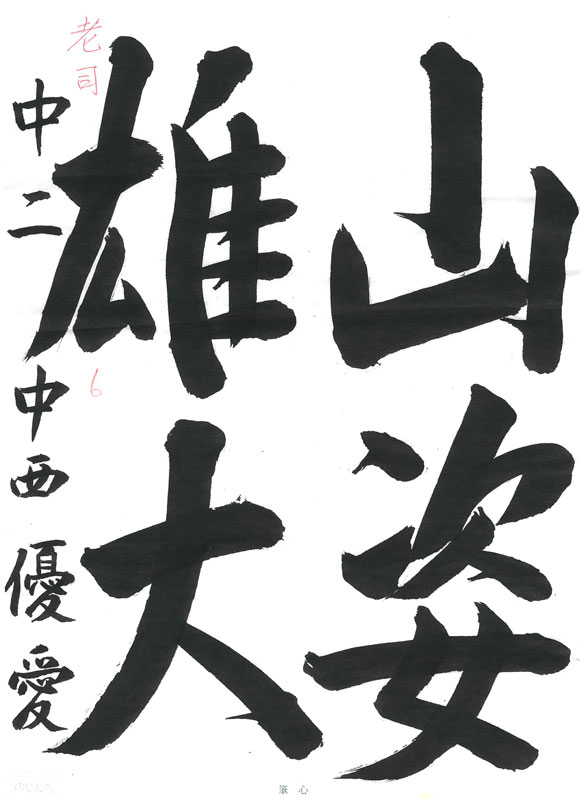 山姿
雄大
老司
中二 中西優愛
6
筆心